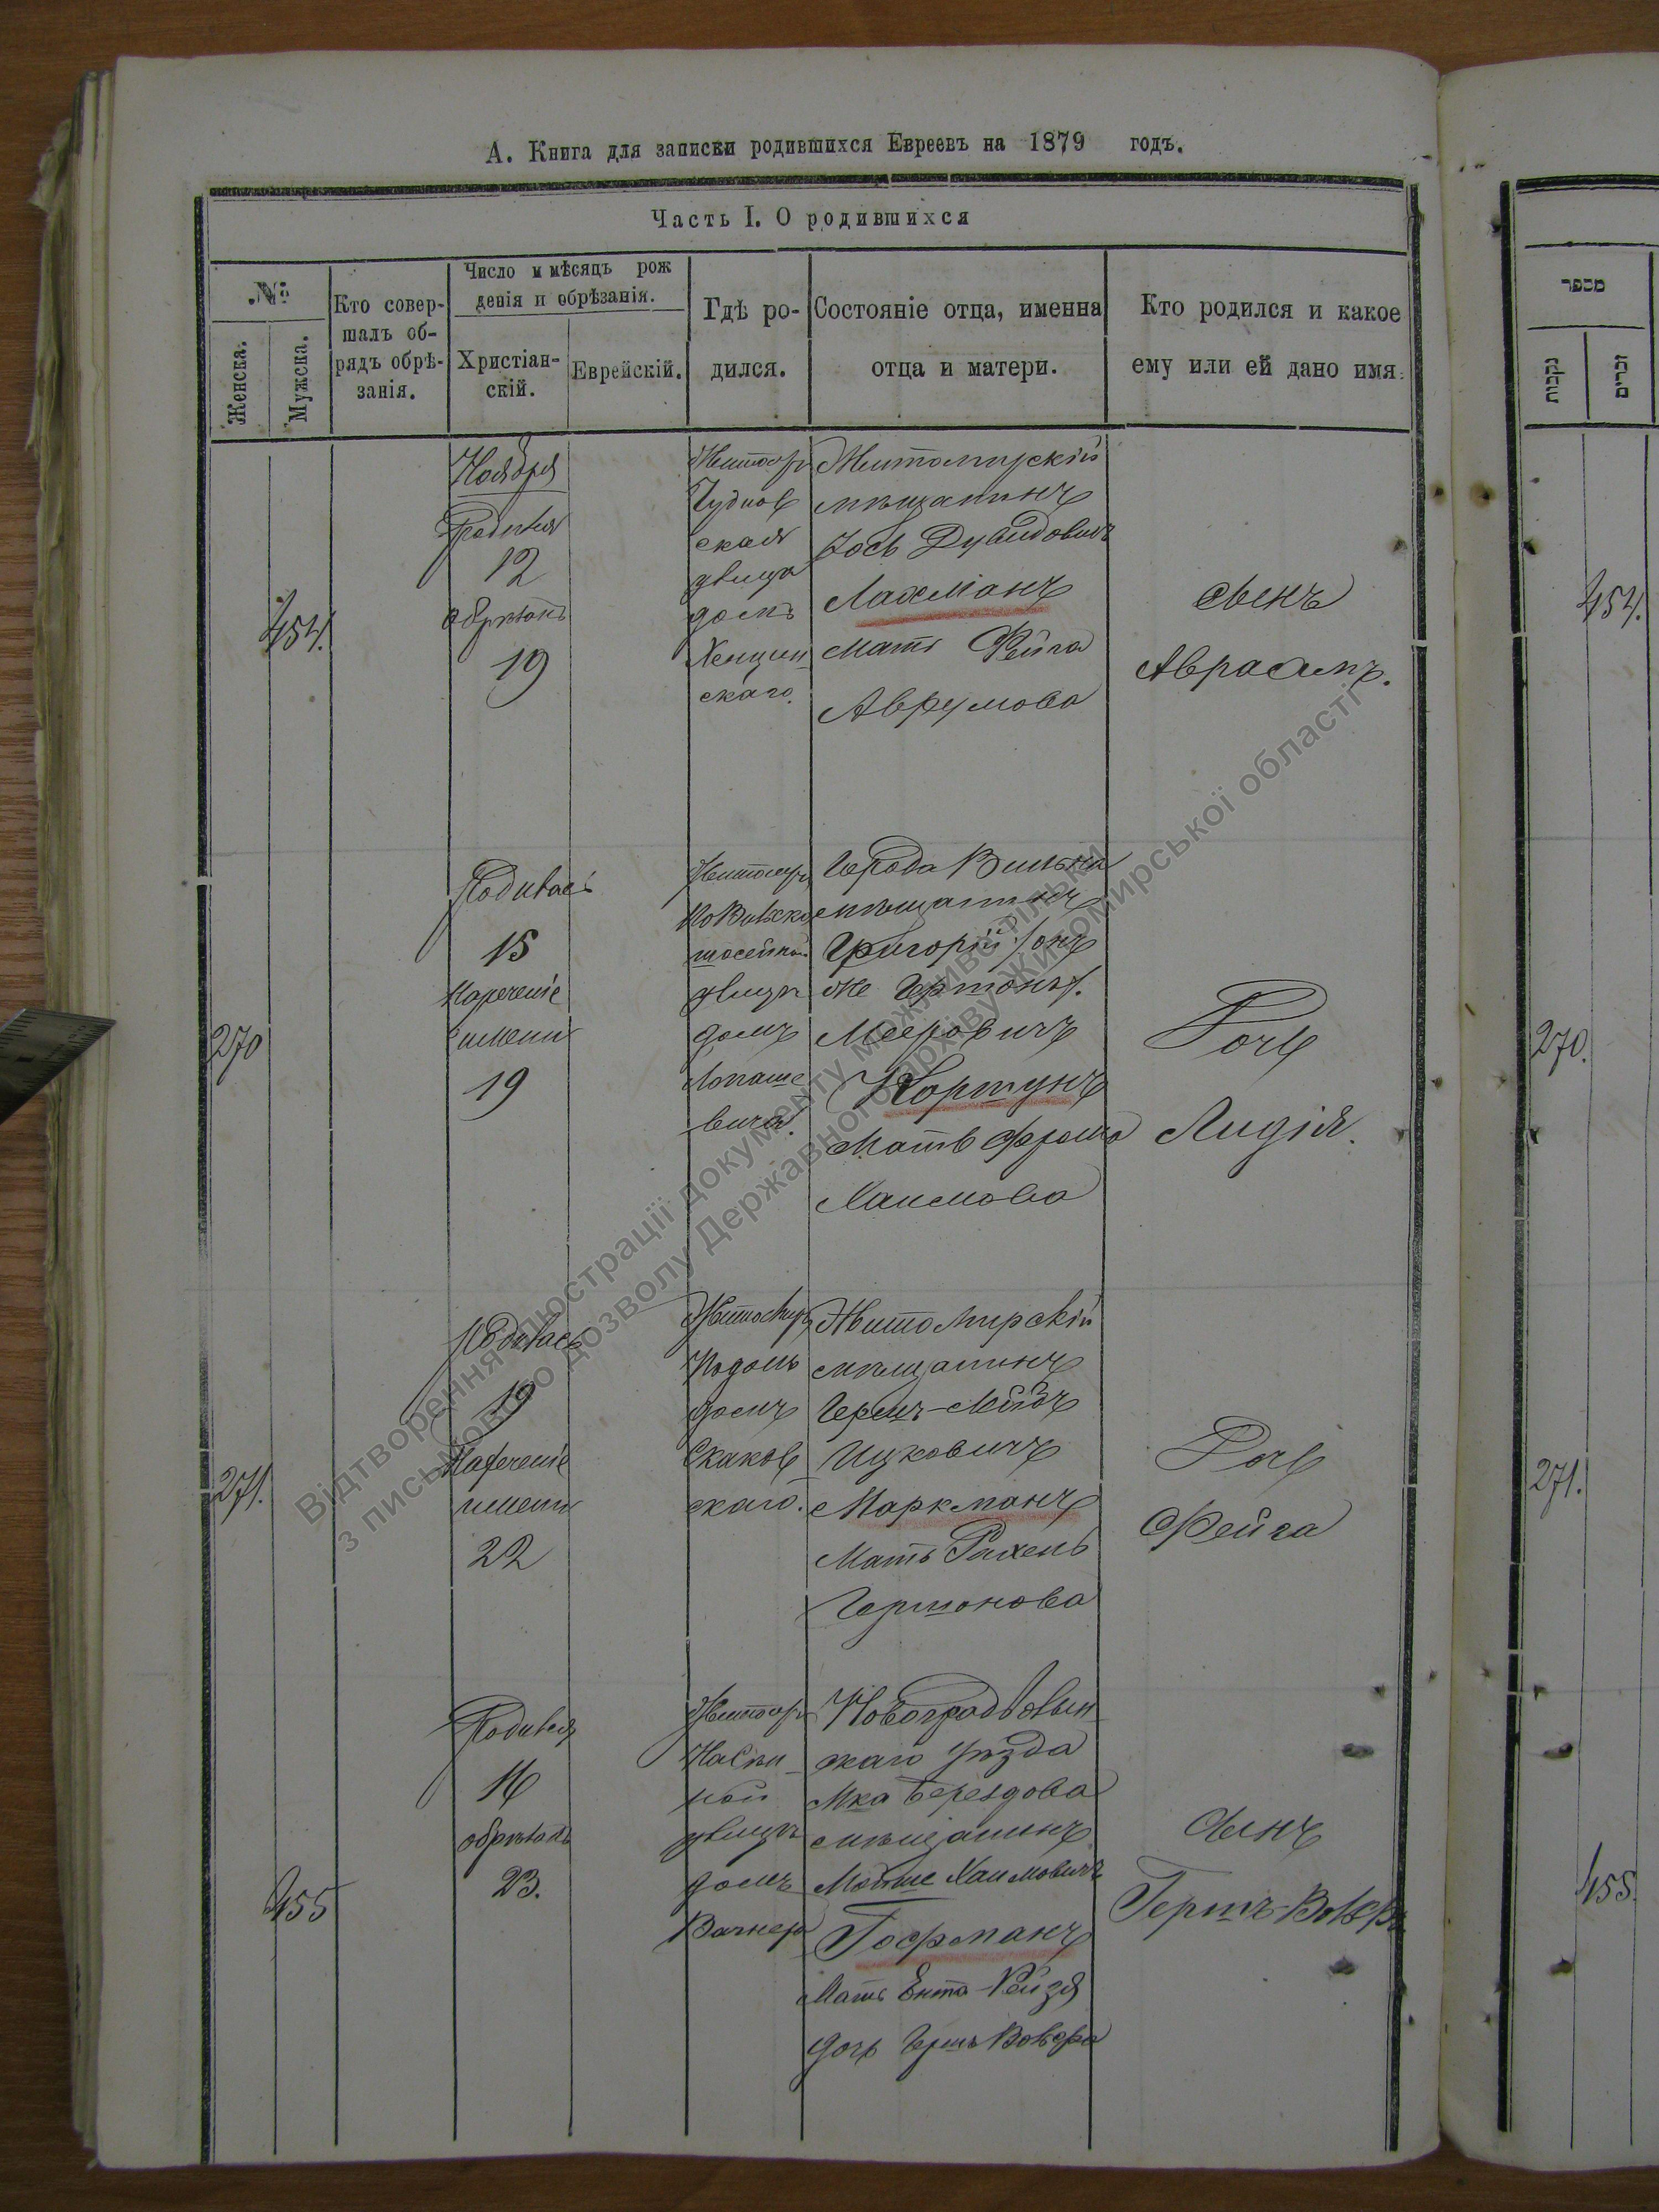 А. Книга для записки родившихся Евреевъ на 1879 годъ.
Часть I. О родившихся
№
Женска.
Мужска.
Кто совер-
шалъ об-
рядъ обрѣ-
занія.
Число и мѣсяцъ рож
денія и обрѣзанія.
Христіан-
скій.
Еврейскій.
Гдѣ ро-
дился.
Состояніе отца, именна
отца и матери.
Кто родился и какое
ему или ей дано имя.
454.
Ноября
Родился
12
обрѣзанъ
19
Житомиръ
Чуднов
ская
улица
домъ
скаго.
Житомирскій
мѣщанинъ
Іось Дувидовичъ
Лахманъ
Мать Фейга
Аврумова
сынъ
Авраамъ.
270
Родилась
15
Нареченіе
имени
19
Житомиръ
улица
домъ
вича.
Города Вильна
мѣщанинъ
Григорій /онъ
же Гершонъ/.
Мееровичъ
Коршунъ
Мать Фрома
Хаимова
Дочь
Лидія.
271.
Родилась
19
Нареченіе
имени
22
Житомиръ
домъ
Скаков
скаго.
Житомирскій
мѣщанинъ
Гершъ-Лейбъ
Ицковичъ
Маркманъ
Мать Рахель
Гершонова
Дочь
Фейга
455
Родился
16
обрѣзанъ
23.
Житомиръ
улицѣ
домъ
Вагнера
Новоградволын
скаго уѣзда
Мка Берездова
мѣщанинъ
Мошше Хаимовичъ
Гофманъ
Мать Ента-Рейзя
дочь Гершъ Вольфа
сынъ
Гершъ-Вольфъ
מספר
נקבות
זכרים
454.
270.
271.
455.
Відтворення ілюстрації документу можливо тільки
з письмового дозволу Державного архіву Житомирської області